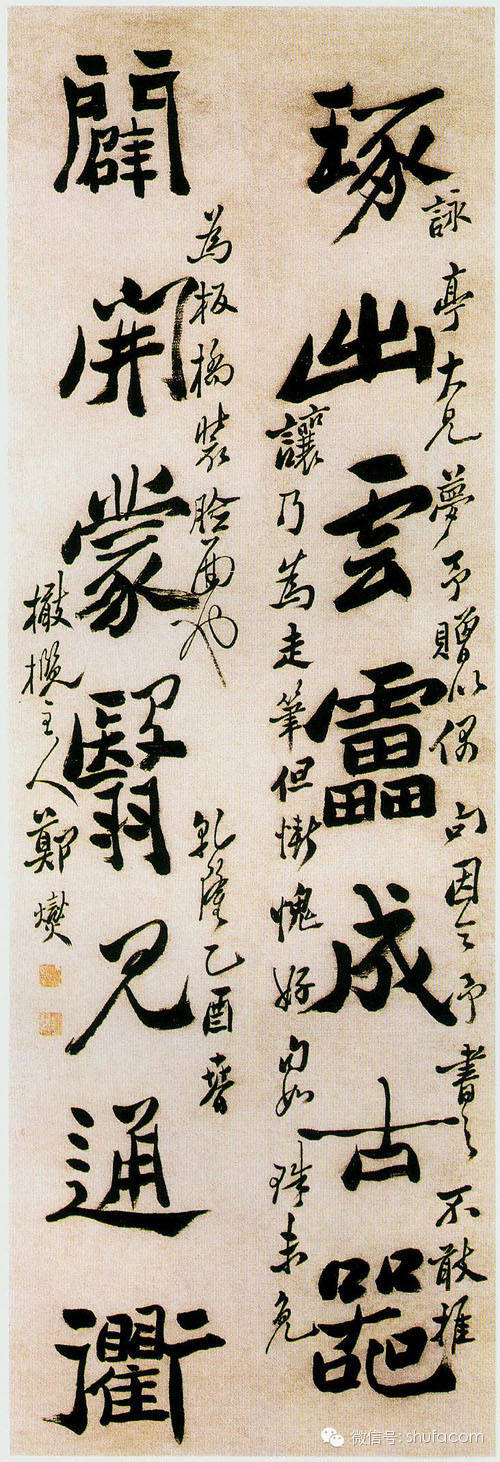 琢出雲靁成古器
闢開蒙翳見通衢
詠亭大兄夢予贈以偶句因令予書之不敢推
讓乃為走筆但慚愧好句如珠未免
為板橋裝臉面也
乾隆乙酉春
橄欖主人鄭燮
微信号:shufacom